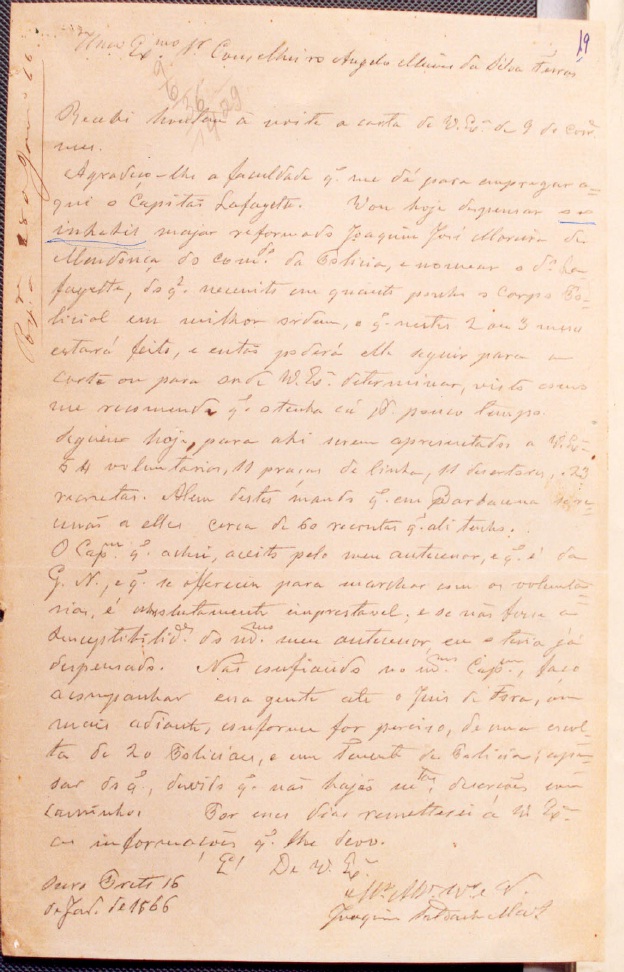 Exmo Sr Conselheiro Angelo Muniz da Silva Ferraz
19
9
6
36
1929
Recebi hontem á noite a carta de V. Exa de 9 do corre
mes.
Agradeço-lhe a faculdade q. me dá para empregar a=
qui o Capitão Lafayette. Vou hoje dispensar o
inhabil major reformado Joaquim José Moreira de
Mendonça do comdo da Policia, e nomear o do La=
fayette, do q. necessito em quanto ponho o Corpo Po=
licial em milhor ordem, o q. nestes 2 ou 3 meses
estará feito, e entaõ poderá elle seguir para a
corte ou para onde V. Exa determinar, visto como
me recomenda q. o tenha cá pr pouco tempo.
Seguem hoje para ahi serem apresentados a V. Exa
54 voluntarios, 11 praças de linha, 11 desertores, 23
recrutas. Alem destes mando q. em Barbacena se re=
unaõ a elles cerca de 60 recrutas q. ali tenho.
O Capm q. achei, aceito pelo meu antecessor, e q. é da
G. N., e q. se offereceu para marchar com os volunta=
rios, é absolutamente imprestavel; e se naõ fosse a
susceptibilide do mmo meu antecessor, eu o teria já
dispensado. Naõ confiando no mmo Capm, faço
acompanhar essa gente até o Juis de Fora, ou
mais adiante, conforme for preciso, de uma escol=
ta de 20 Policiaes, e um Tenente de Policia; ape=
zar do q., duvido q. naõ hajaõ mtas deserções em
caminho. Por esses dias remetterei á V. Exa
as informações q. lhe devo.
De V. Exa
Ouro Preto 16
de Jano de 1866
Joaquim Saldanha Marinho